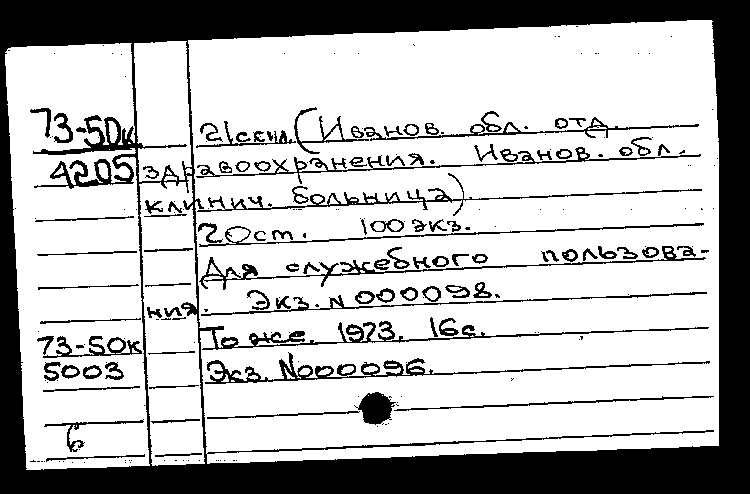 73-50к 21см. (Иванов. обл. отд.
4205 здравоохранения. Иванов. обл.
клинич. больница)
20см. 100 экз.
Для служебного пользова-
ния. Экз. N 000098.
73-50к То же. 1973. 16с.
5003 Экз. N000096.
6